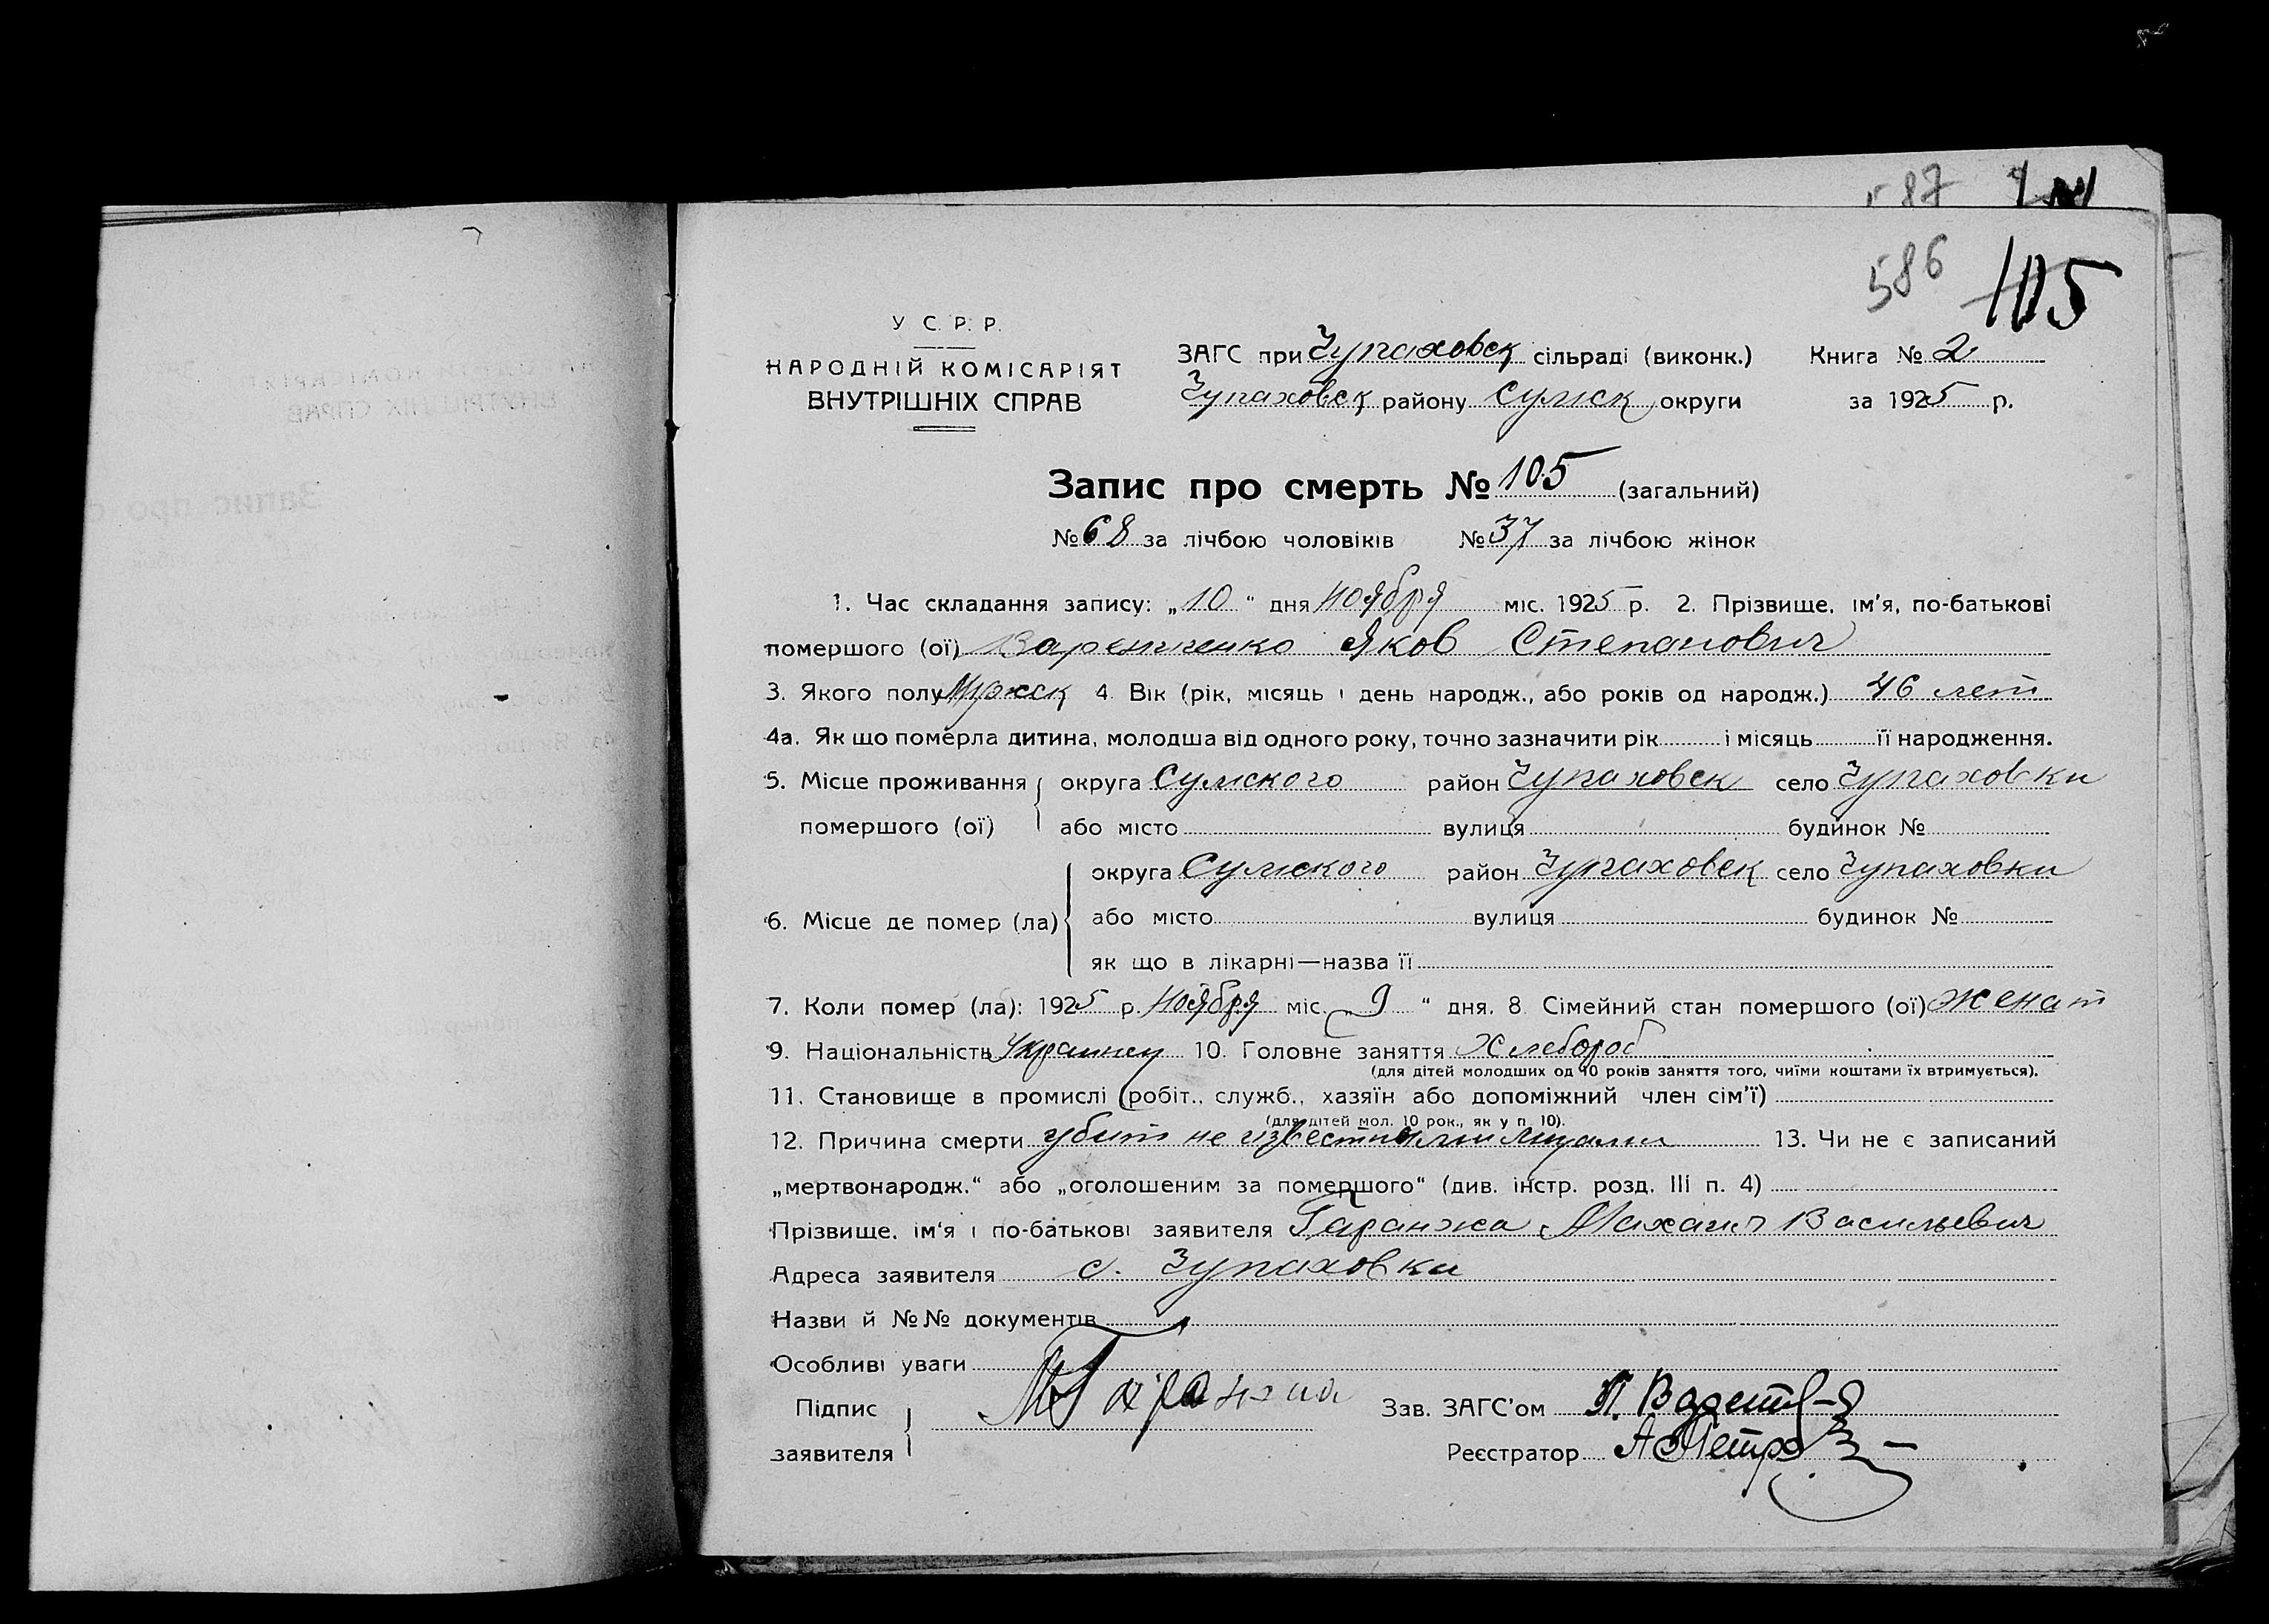 587
586 105
У С. Р. Р.
НАРОДНІЙ КОМІСАРІЯТ
ВНУТРІШНІХ СПРАВ
ЗАГС при Чупаховск сільраді (виконк.) Книга № 2
Чупаховск району Сумск округи за 1925 р.
Запис про смерть № 105 (загальний)
№ 68 за лічбою чоловіків № 37 за лічбою жінок
1. Час складання запису: „10“ дня Ноября міс. 1925 р. 2. Прізвище, ім’я, по-батькові
помершого (ої) Яков Степанович
3. Якого полу Мужск 4. Вік (рік, місяць і день народж., або років од народж.) 46 лет
4а. Як що померла дитина, молодша від одного року, точно зазначити рік і місяць її народження.
5. Місце проживання округа Сумского район Чупаховск село Чупаховки
помершого (ої) або місто вулиця будинок №
округа Сумского район Чупаховск село Чупаховки
6. Місце де помер (ла) або місто вулиця будинок №
як що в лікарні—назва її
7. Коли помер (ла): 1925 р. Ноября міс. „9“ дня. 8 Сімейний стан помершого (ої) женат
9. Національність 10. Головне заняття Хлебороб
(для дітей молодших од 10 років заняття того, чиїми коштами їх втримується).
11. Становище в промислі (робіт., служб., хазяїн або допоміжний член сім’ї)
(для дітей мол. 10 рок., як у п. 10).
12. Причина смерти убит не известными лицами 13. Чи не є записаний
„мертвонародж.“ або „оголошеним за помершого“ (див. інстр. розд. III п. 4)
Прізвище, ім’я і по-батькові заявителя Гаранжа Михаил Васильевич
Адреса заявителя с. Чупаховки
Назви й №№ документів
Особливі уваги
Підпис М Гаранжа Зав. ЗАГС’ом
заявителя Реєстратор